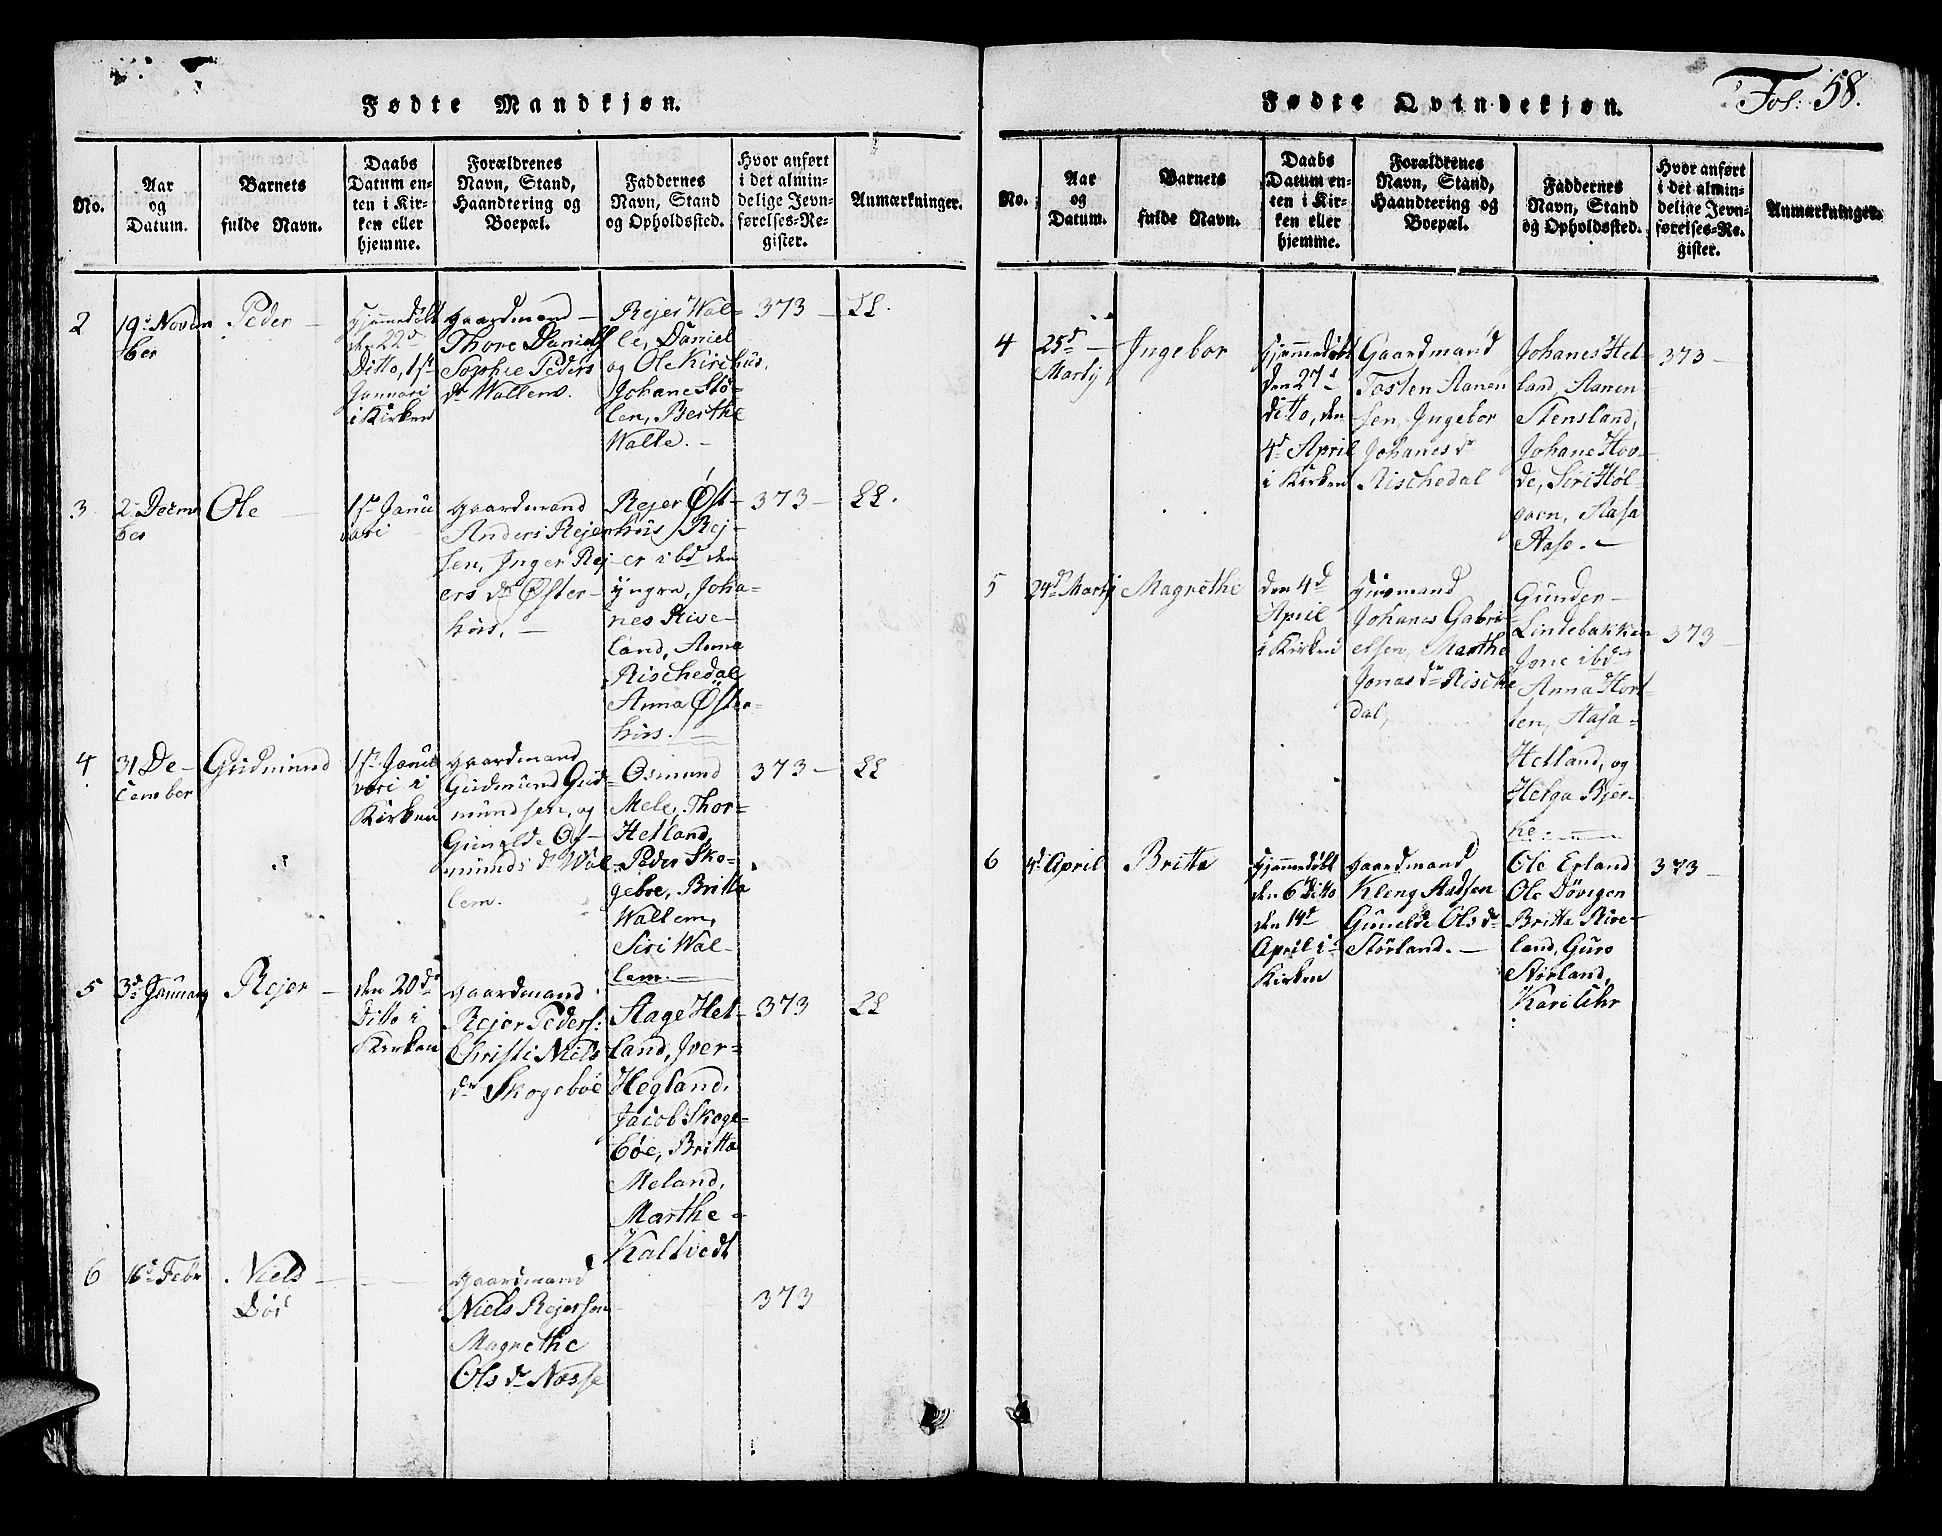 Fødte Mandkjøn.
No.
Aar
og
Datum.
Barnets
fulde Navn.
Daabs
Datum en-
ten i Kir-
ken eller
hjemme.
Forældrenes
Navn, Stand,
Haandtering og
Boepæl.
Faddernes
Navn, Stand
og Opholdssted.
Hvor anført
i det almin-
delige Jevn-
førelses-Re-
gister.
Anmærkninger.
2
19de Novem
ber
Peder
Hjemmedøbt
den 22de
Ditto, 1ste
Januari
i Kirken
Gaardmand
Thore Daniels
Sophie Peders
dr Wallem.
Rejer Wal-
le, Daniel
og Ole Kirchus,
Johane Stø-
len, Berthe
Walle.
373
LL
3
2 Decem
ber
Ole
1ste Janu
vari
Gaardmand
Anders Rejer
sen, Inger Rej-
ers dr Øster-
hus.
Rejer Øst-
hus, Rej-
er ibd den
yngre, Joha-
nes Rise-
land, Anna
Rischedal
Anna Øster-
hus.
373
LL.
4
31 De-
cember
Gudmund
1ste Janu
vari i
Kirken
Gaardmand
Gudmund Gud-
mundsen, og
Gunelde Os-
munds dr Wal
lem.
Osmund
Mele, Thor-
Helland,
Peder Sko-
geboe, Britta
Wallem,
Siri Wal-
lem.
373
LL
5
3de Januarj
Rejer
den 20de
Ditto i
Kirken
Gaardmand
Rejer Peders:
Christi Niels
dr Skogeboe
Aage Het-
land, Iver-
Hegland,
Jacob Skoge-
bøe, Britta
Meland,
Marthe
Kaltvedt
373
LL
6
16de Febr
Niels
Død
Gaardmand
Niels Rejersen
Magrethe
Ols dr Næsse
373
Fødte Qvindekjøn.
Fol: 58.
No.
Aar
og
Datum.
Barnets
fulde Navn.
Daabs
Datum en-
ten i Kir-
ken eller
hjemme.
Forældrenes
Navn, Stand,
Haandtering og
Boepæl.
Faddernes
Navn, Stand
og Opholdssted.
Hvor anført
i det almin-
delige Jevn-
førelses-Re-
gister.
Anmærkninger.
4
25de
Martij
Ingebor
Hjemmedøbt
den 27de
ditto, den
4de April
i Kirken
Gaardmand
Tosten Aanen
sen, Ingebor
Johanes dr
Rischedal
Johanes Hel-
land, Aanen
Stensland,
Johane Hov-
de, Siri Høl-
garn, Aasa
Aase.
373
5
24de Martij
Magrethe
den 4de
April
i Kirken
Huusmand
Johanes Gabri-
elsen, Marthe
Jonas dr Rische
dal,
Gunder
Lindebakken
Jone ibd
Anna Hort-
len, Aasa
Helland, og
Helga Bjer-
ke.
373
6
4de April
Britta
Hjemmedøbt
den 6 Ditto
den 14de
April i
Kirken
Gaardmand
Kleng Aadsen
Gunelde Ols dr
Størland.
Ole Erland
Ole Døvigen
Britta Rive-
land, Guro
Størland,
Kari Uhr
373